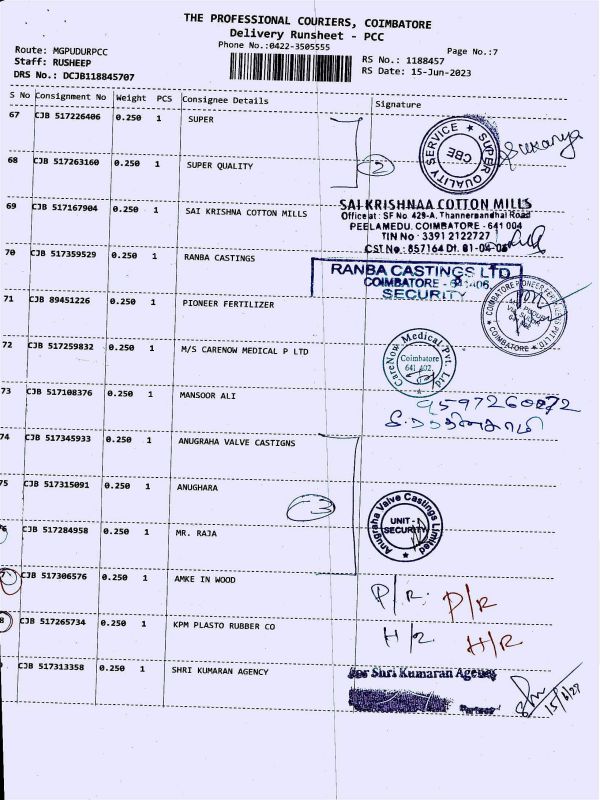 THE PROFESSIONAL COURIERS, COIMBATORE
Delivery Runsheet - PCC
Phone No.:0422-3505555
Page No.:7
Route: MGPUDURPCC
Staff: RUSHEEP
DRS No.: DCJB118845707
RS No.: 1188457
RS Date: 15-Jun-2023
S No Consignment No Weight PCS Consignee Details Signature
67 CJB 517226406 0.250 1 SUPER
SUPER QUALITY SERVICE ★ CBE
Sukanya
2
68 CJB 517263160 0.250 1 SUPER QUALITY
69 CJB 517167904 0.250 1 SAI KRISHNA COTTON MILLS
SAI KRISHNAA COTTON MILLS
Office at : SF No. 429-A, Thanneerpandhal Road
PEELAMEDU, COIMBATORE - 641 004
TIN No : 3391 2122727
CST No : 857164 Dt. 01-04-05
70 CJB 517359529 0.250 1 RANBA CASTINGS
RANBA CASTINGS LTD
COIMBATORE - 641406
SECURITY
71 CJB 89451226 0.250 1 PIONEER FERTILIZER
COIMBATORE PIONEER FERTILIZERS PVT LTD
COIMBATORE
72 CJB 517259832 0.250 1 M/S CARENOW MEDICAL P LTD
CareNow Medical Pvt. Ltd
Coimbatore
641 402.
73 CJB 517108376 0.250 1 MANSOOR ALI
9597260272
74 CJB 517345933 0.250 1 ANUGRAHA VALVE CASTIGNS
75 CJB 517315091 0.250 1 ANUGHARA
3
Anugraha Valve Castings Limited
UNIT - I
SECURITY
6 CJB 517284958 0.250 1 MR. RAJA
7 CJB 517306576 0.250 1 AMKE IN WOOD
P/R. P/R
8 CJB 517265734 0.250 1 KPM PLASTO RUBBER CO
H/R H/R
CJB 517313358 0.250 1 SHRI KUMARAN AGENCY
For Shri Kumaran Agency
Partner
15/6/23